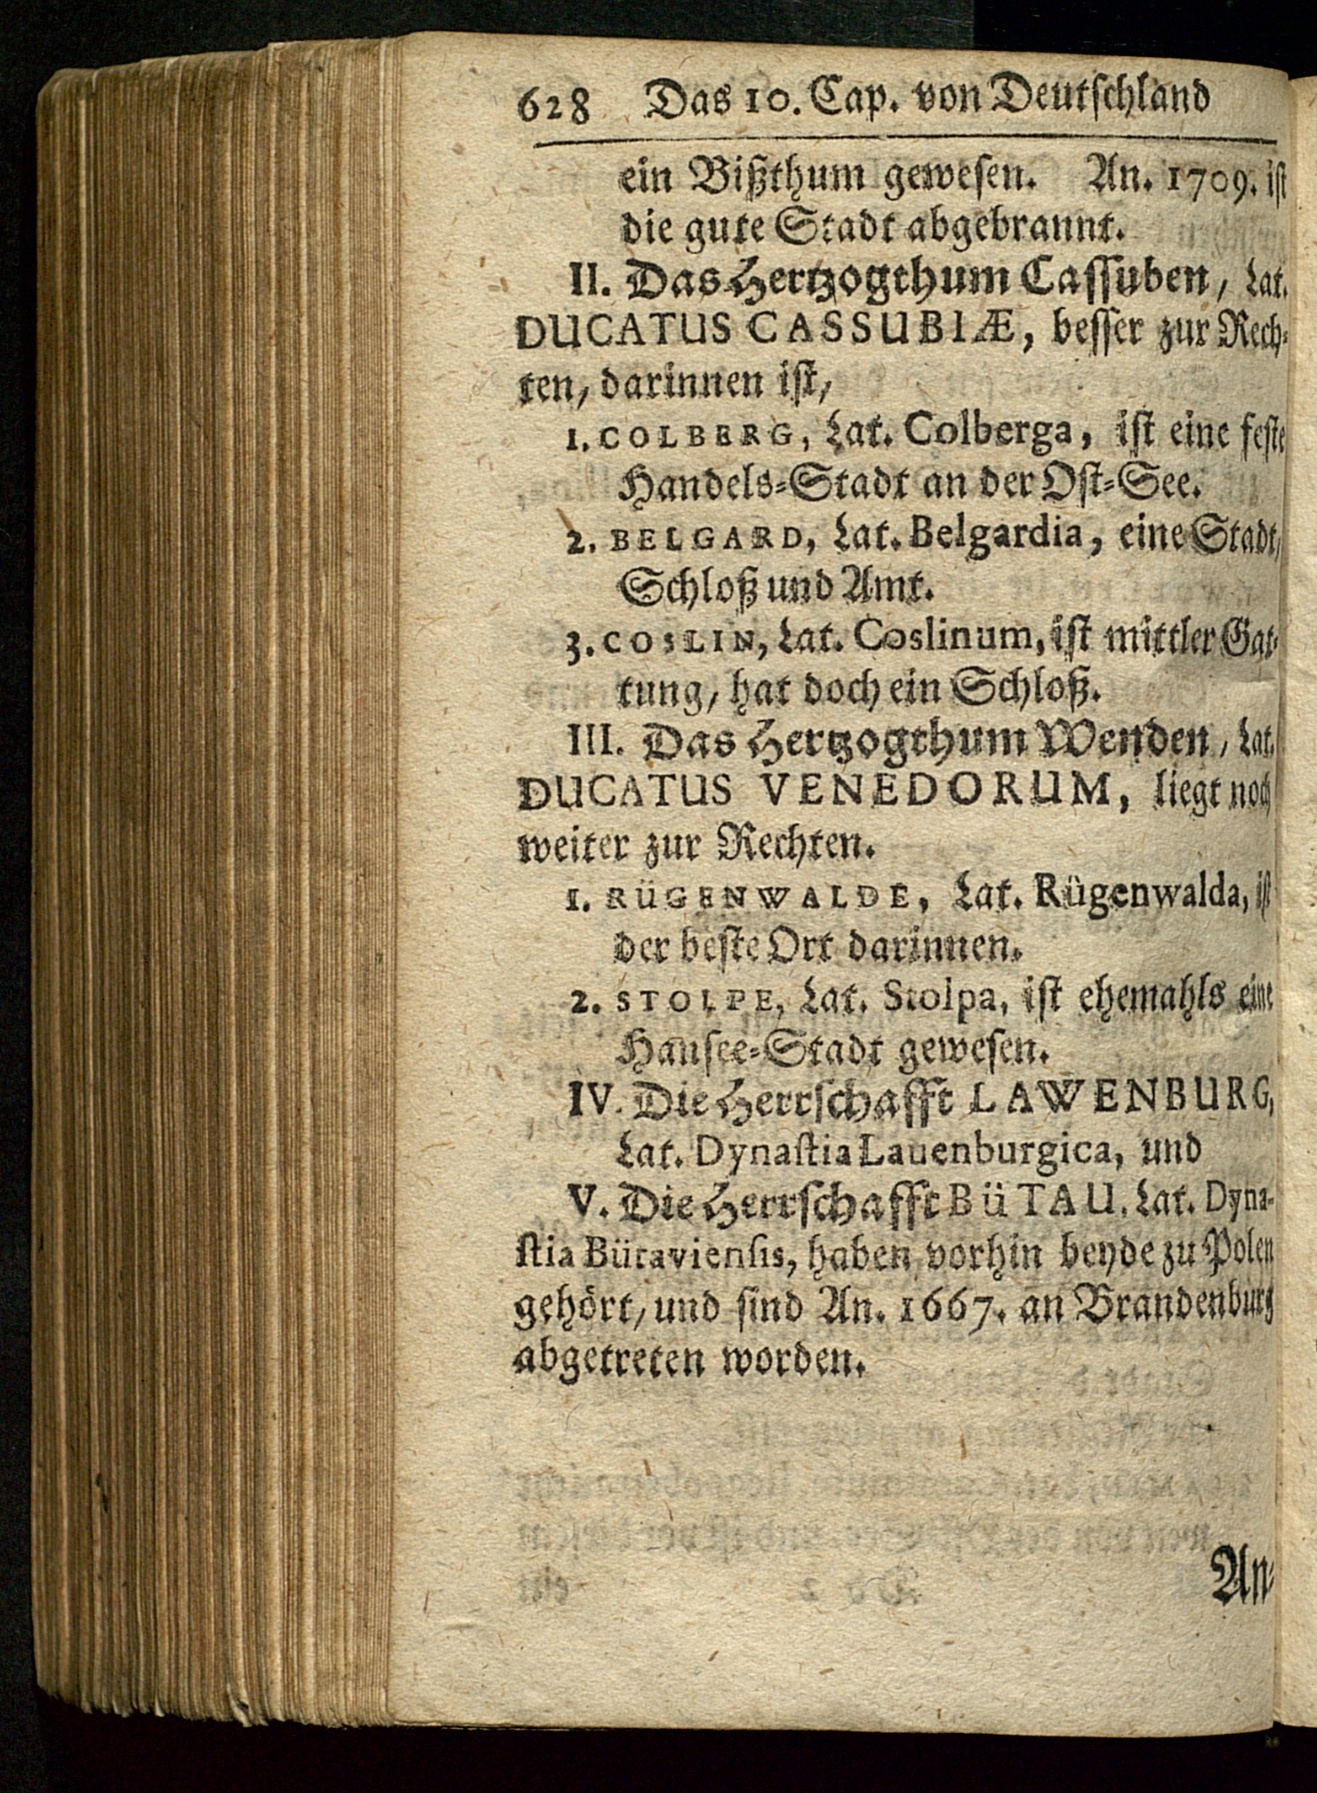 628 Das 10. Cap. von Deutschland
ein Bißthum gewesen. An. 1709. ist
die gute Stadt abgebrannt.
II. Das Hertzogthum Cassuben, Lat.
DUCATUS CASSUBIÆ, besser zur Rech-
ten, darinnen ist,
1. COLBERG, Lat. Colberga, ist eine feste
Handels-Stadt an der Ost-See.
2. BELGARD, Lat. Belgardia, eine Stadt,
Schloß und Amt.
3. COSLIN, Lat. Coslinum, ist mittler Gat-
tung, hat doch ein Schloß.
III. Das Hertzogthum Wenden, Lat.
DUCATUS VENEDORUM, liegt noch
weiter zur Rechten.
1. RÜGENWALDE, Lat. Rügenwalda, ist
der beste Ort darinnen.
2. STOLPE, Lat. Stolpa, ist ehemahls eine
Hansee-Stadt gewesen.
IV. Die Herrschafft LAWENBURG,
Lat. Dynastia Lauenburgica, und
V. Die Herrschafft BüTAU, Lat. Dyna-
stia Bütaviensis, haben vorhin beyde zu Polen
gehört, und sind An. 1667. an Brandenburg
abgetreten worden.
An-